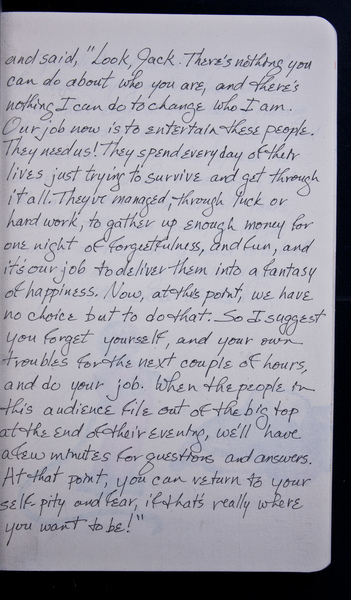 and said, "Look, Jack. There's nothing you
can do about who you are, and there's
nothing I can do to change who I am.
Our job now is to entertain these people.
They need us! They spend every day of their
lives just trying to survive and get through
it all. They've managed, through luck or
hard work, to gather up enough money for
one night of forgetfulness, and fun, and
it's our job to deliver them into a fantasy
of happiness. Now, at this point, we have
no choice but to do that. So I suggest
you forget yourself, and your own
troubles for the next couple of hours,
and do your job. When the people in
this audience file out of the big top
at the end of their evening, we'll have
a few minutes for questions and answers.
At that point, you can return to your
self-pity and fear, if that's really where
you want to be!"